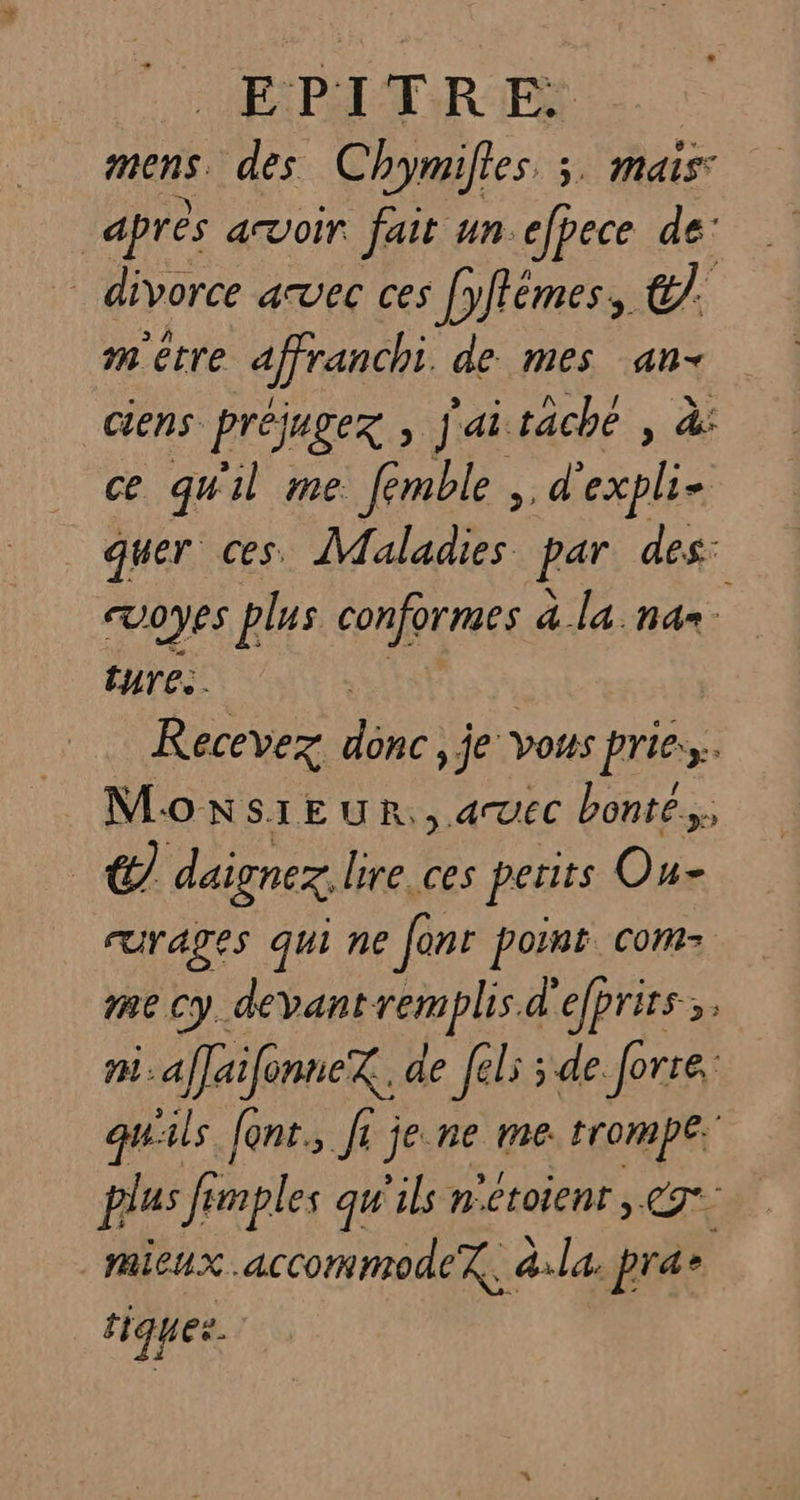 EPITRE.
mens des Chymiſtes ; mais
aprés avoir fait un eſpece de
divorce avec ces ſyſtêmes, &
m'être affranchi de mes an-
ciens préjugez , j'ai tâché , à
ce qu'il me ſemble , d'expli-
quer ces Maladies par des
voyes plus conformes à la na-
ture.
Recevez donc , je vous prie,
MONSIEUR, avec bonté,
& daignez lire ces petits Ou-
vrages qui ne ſont point com-
me cy devant remplis d'eſprits,
ni aſſaiſonnez de ſels ; de ſorte
qu'ils ſont, ſi je ne me trompe
plus ſimples qu'ils n'étoient , &
mieux accommodez à la pra-
tique.